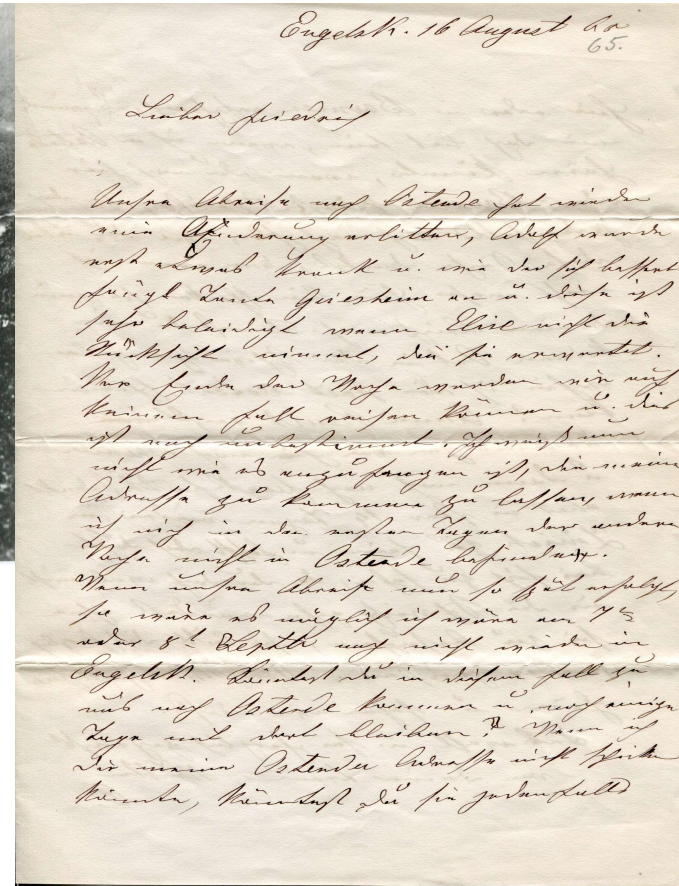 Engelsk. 16 August 65
65.
Lieber Friedrich
Unsre Abreise nach Ostende hat wieder
eine Änderung erlitten, Adolf wurde
erst etwas krank u. wie der sich bessert
fängt Tante Griesheim an u. diese ist
sehr beleidigt wenn Elise nicht die
Rücksicht nimmt, die sie erwartet.
Vor Ende der Woche werden wir auf
keinem Fall reisen können u. dies
ist noch unbestimmt. Ich weiß nun
nicht wie es anzufangen ist, dir meine
Adresse zu kommen zu lassen, wenn
ich mich in den ersten Tagen der andern
Woche nicht in Ostende befinde.
Wenn unsre Abreise nun so spät erfolgt,
so wäre es möglich ich wäre am 7t
oder 8t Septb noch nicht wieder in
Engelsk. Könntest du in diesem Fall zu
uns nach Ostende kommen u. noch einige
Tage mit dort bleiben? Wenn ich
dir meine Ostender Adresse nicht schicken
könnte, könntest du sie jedenfalls